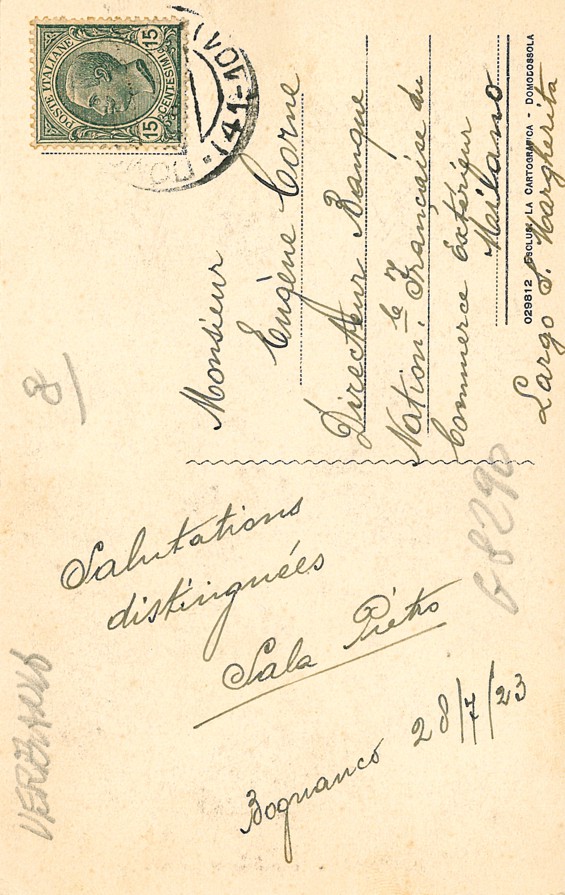 Salutations
distinguées
Sala Pietro
Bognanco 28/7/23
Monsieur
Eugène Corne
Directeur Banque
Nation.le Française du
Commerce Extérieur
Milano
Largo S. Margherita
029812 ESCLUS. LA CARTOGRAFICA - DOMODOSSOLA
POSTE ITALIANE
15 CENTESIMI 15
8
G8290